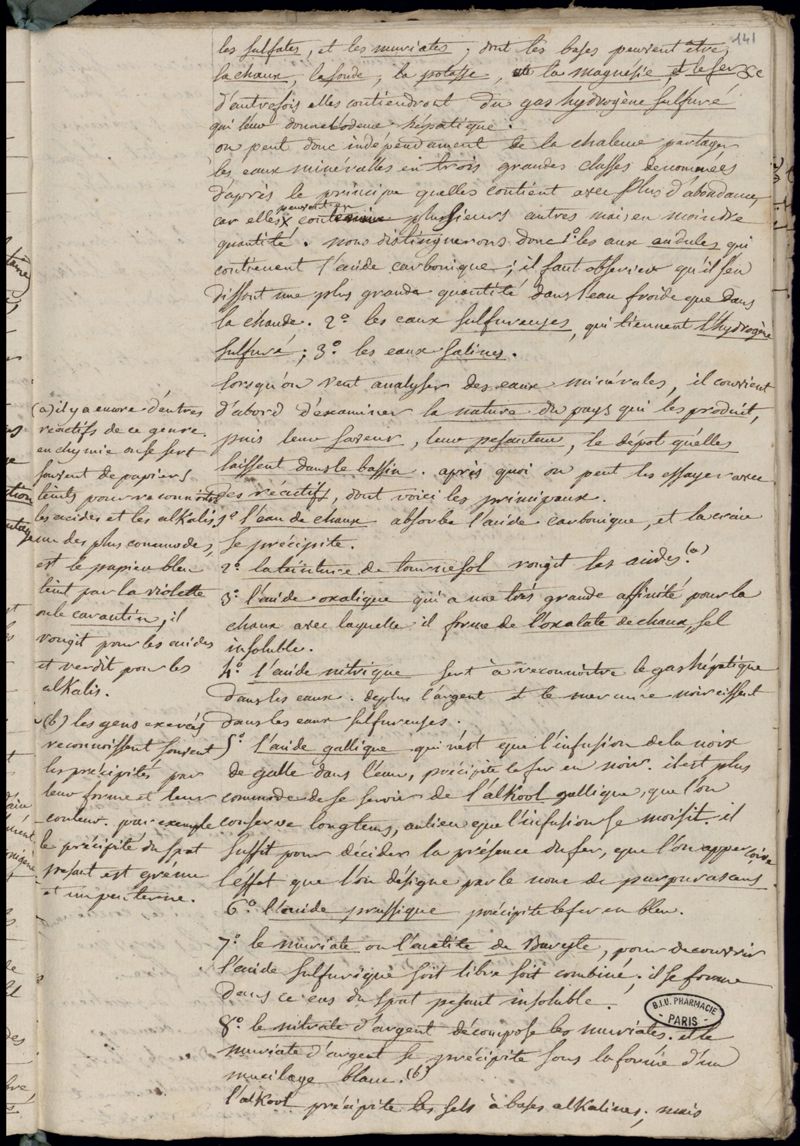 141
les sulfates, et les muriates, dont les bases peuvent être,
la chaux, la soude, la potasse, la magnésie, et le fer &c
d'autrefois elles contiendront du gas hydrogène sulfuré
qui leur donne l'odeur hépatique.
on peut donc indépendament de la chaleur partager
les eaux minérales en trois grandes classes denommées
d'après le principe quelles contient avec plus d'abondance
car elles peuvent en contenir plussieurs autres mais en moindre
quantité. nous distinguerons donc 1° les aux acidules qui
contiennent l'acide carbonique; il faut observer qu'il s'en
dissout une plus grande quantité dans l'eau froide que dans
la chaude. 2° les eaux sulfureuses, qui tiennent l'hydrogène
sulfuré; 3° les eaux salines.
lorsqu'on veut analyser des eaux minérales, il convient
d'abord d'examiner la nature du pays qui les produit,
puis leur saveur, leur pesanteur, le dépot qu'elles
laissent dans le bassin. après quoi on peut les essayer avec
des réactifs, dont voici les principaux.
1° l'eau de chaux absorbe l'acide carbonique, et la craie
se précipite.
2° la teinture de tournesol rougit les acides. (a)
3° l'acide oxalique qui a une très grande affinité pour la
chaux avec laquelle il forme de l'oxalate de chaux, sel
insoluble.
4° l'acide nitrique sert à reconnoitre le gas hépatique
dans les eaux. deplus l'argent et le mercure noircissent
dans les eaux sulfureuses.
5° l'acide gallique qui n'est que l'infusion de la noix
de galle dans l'eau, précipite le fer en noir. il est plus
commode de se servir de l'alkool gallique, que l'on
conserve longtems, aulieu que l'infusion se moisit. il
suffit pour décider la présence du fer, que l'on apperçoive
l'effet que l'on désigne par le nom de purpurascens.
6° l'acide prussique précipite le fer en bleu.
7° le muriate ou l'acetite de Baryte, pour decouvrir
l'acide sulfurique soit libre soit combiné; il se forme
dans ce cas du spat pesant insoluble.
8° le nitrate d'argent décompose les muriates. et le
muriate d'argent se précipite sous la forme d'un
mucilage blanc. (b)
l'alkool précipite les sels à bases alkalines, mais
(a) il y a encore d'autres
réactifs de ce genre.
en chymie on se sert
souvent de papiers
teints pour reconnoitre
les acides et les alkalis,
un des plus commode,
est le papier bleu
teint par la violette
ou le
rougit pour les acides
et verdit pour les
alkalis.
(b) les gens exercés
reconnoissent souvent
les précipités par
leur forme et leur
couleur. par exemple
le précipité du spat
pesant est grénu
et un peu terne.
B.I.U. PHARMACIE
PARIS